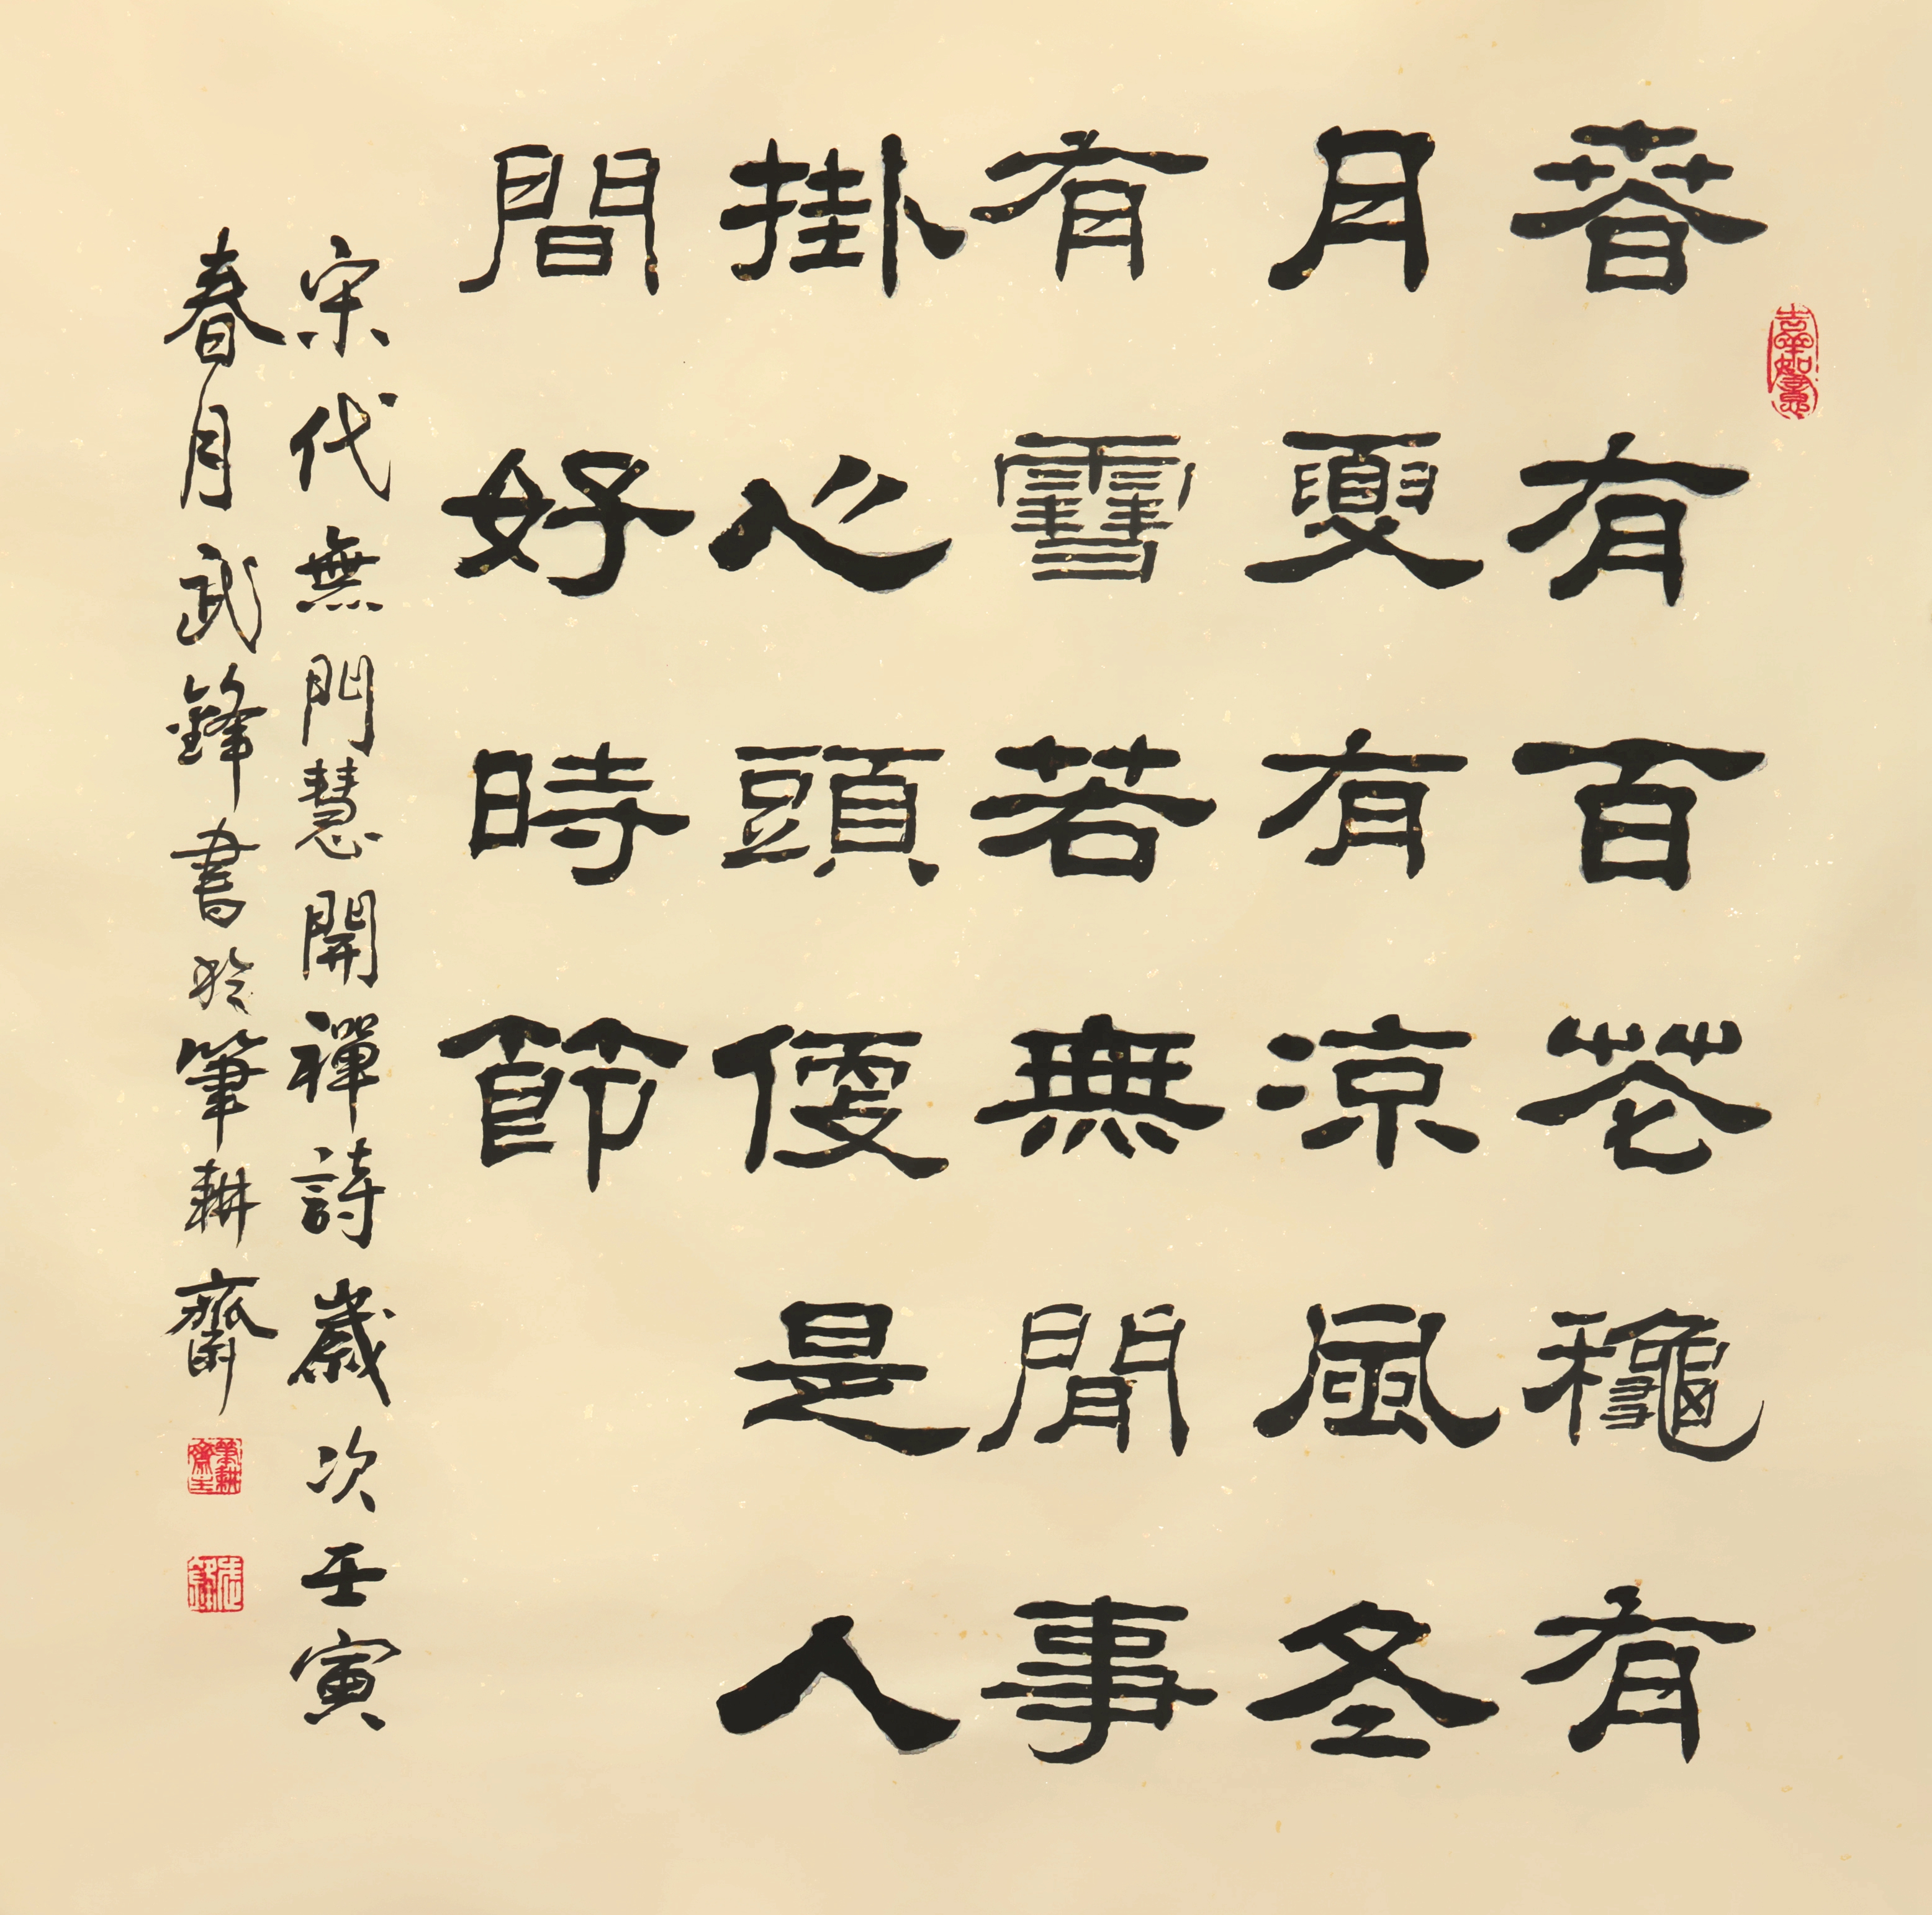 春有百花龝有
月夏有涼風冬
有雪若無閒事
掛心頭便是人
間好時節
宋代無門慧開禪詩歲次壬寅
春月武鋒書於筆耕齋
吉祥如意
筆耕齋主